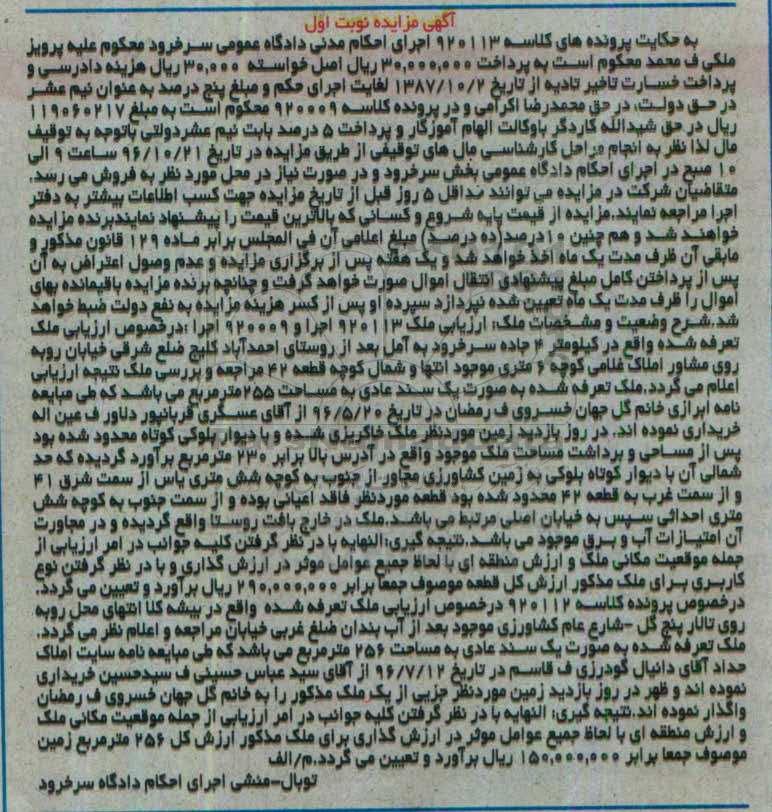 آگهی مزایده نوبت اول
به حکایت پرونده های کلاسه ۹۲۰۱۱۳ اجرای احکام مدنی دادگاه عمومی سرخرود محکوم علیه پرویز
ملکی ف محمد محکوم است به پرداخت ۳۰,۰۰۰,۰۰۰ ریال اصل خواسته ۳۰,۰۰۰ ریال هزینه دادرسی و
پرداخت خسارت تاخیر تادیه از تاریخ ۱۳۸۷/۱۰/۲ لغایت اجرای حکم و مبلغ پنج درصد به عنوان نیم عشر
در حق دولت، در حق محمدرضا اکرامی و در پرونده کلاسه ۹۲۰۰۰۹ محکوم است به مبلغ ۱۱۹۰۶۰۲۱۷
ریال در حق شیدالله کاردگر باوکالت الهام آموزگار و پرداخت ۵ درصد بابت نیم عشردولتی باتوجه به توقیف
مال لذا نظر به انجام مراحل کارشناسی مال های توقیفی از طریق مزایده در تاریخ ۹۶/۱۰/۲۱ ساعت ۹ الی
۱۰ صبح در اجرای احکام دادگاه عمومی بخش سرخرود و در صورت نیاز در محل مورد نظر به فروش می رسد.
متقاضیان شرکت در مزایده می توانند حداقل ۵ روز قبل از تاریخ مزایده جهت کسب اطلاعات بیشتر به دفتر
اجرا مراجعه نمایند.مزایده از قیمت پایه شروع و کسانی که بالاترین قیمت را پیشنهاد نمایندبرنده مزایده
خواهند شد و هم چنین ۱۰درصد(ده درصد) مبلغ اعلامی آن فی المجلس برابر ماده ۱۲۹ قانون مذکور و
مابقی آن ظرف مدت یک ماه اخذ خواهد شد و یک هفته پس از برگزاری مزایده و عدم وصول اعتراض به آن
پس از پرداختن کامل مبلغ پیشنهادی انتقال اموال صورت خواهد گرفت و چنانچه برنده مزایده باقیمانده بهای
اموال را ظرف مدت یک ماه تعیین شده نپردازد سپرده او پس از کسر هزینه مزایده به نفع دولت ضبط خواهد
شد.شرح وضعیت و مشخصات ملک: ارزیابی ملک ۹۲۰۱۱۳ اجرا و ۹۲۰۰۰۹ اجرا :درخصوص ارزیابی ملک
تعرفه شده واقع در کیلومتر ۴ جاده سرخرود به آمل بعد از روستای احمدآباد کلیج ضلع شرقی خیابان روبه
روی مشاور املاک غلامی کوچه ۶ متری موجود انتها و شمال کوچه قطعه ۴۲ مراجعه و بررسی ملک نتیجه ارزیابی
اعلام می گردد.ملک تعرفه شده به صورت یک سند عادی به مساحت ۲۵۵مترمربع می باشد که طی مبایعه
نامه ابرازی خانم گل جهان خسروی ف رمضان در تاریخ ۹۶/۵/۲۰ از آقای عسگری قربانپور دلاور ف عین اله
خریداری نموده اند. در روز بازدید زمین موردنظر ملک خاکریزی شده و با دیوار بلوکی کوتاه محدود شده بود
پس از مساحی و برداشت مساحت ملک موجود واقع در آدرس بالا برابر ۲۳۰ مترمربع برآورد گردیده که حد
شمالی آن با دیوار کوتاه بلوکی به زمین کشاورزی مجاور از جنوب به کوچه شش متری یاس از سمت شرق ۴۱
و از سمت غرب به قطعه ۴۲ محدود شده بود قطعه موردنظر فاقد اعیانی بوده و از سمت جنوب به کوچه شش
متری احداثی سپس به خیابان اصلی مرتبط می باشد.ملک در خارج بافت روستا واقع گردیده و در مجاورت
آن امتیازات آب و برق موجود می باشد.نتیجه گیری: النهایه با در نظر گرفتن کلیه جوانب در امر ارزیابی از
جمله موقعیت مکانی ملک و ارزش منطقه ای با لحاظ جمیع عوامل موثر در ارزش گذاری و با در نظر گرفتن نوع
کاربری برای ملک مذکور ارزش کل قطعه موصوف جمعا برابر ۲۹۰,۰۰۰,۰۰۰ ریال برآورد و تعیین می گردد.
درخصوص پرونده کلاسه ۹۲۰۱۱۲ درخصوص ارزیابی ملک تعرفه شده واقع در بیشه کلا انتهای محل روبه
روی تالار پنج گل -شارع عام کشاورزی موجود بعد از آب بندان ضلع غربی خیابان مراجعه و اعلام نظر می گردد.
ملک تعرفه شده به صورت یک سند عادی به مساحت ۲۵۶ مترمربع می باشد که طی مبایعه نامه سایت املاک
حداد آقای دانیال گودرزی ف قاسم در تاریخ ۹۶/۷/۱۲ از آقای سید عباس حسینی ف سیدحسین خریداری
نموده اند و ظهر در روز بازدید زمین موردنظر جزیی از یک ملک مذکور را به خانم گل جهان خسروی ف رمضان
واگذار نموده اند.نتیجه گیری: النهایه با در نظر گرفتن کلیه جوانب در امر ارزیابی از جمله موقعیت مکانی ملک
و ارزش منطقه ای با لحاظ جمیع عوامل موثر در ارزش گذاری برای ملک مذکور ارزش کل ۲۵۶ مترمربع زمین
موصوف جمعا برابر ۱۵۰,۰۰۰,۰۰۰ ریال برآورد و تعیین می گردد.م/الف
توبال-منشی اجرای احکام دادگاه سرخرود